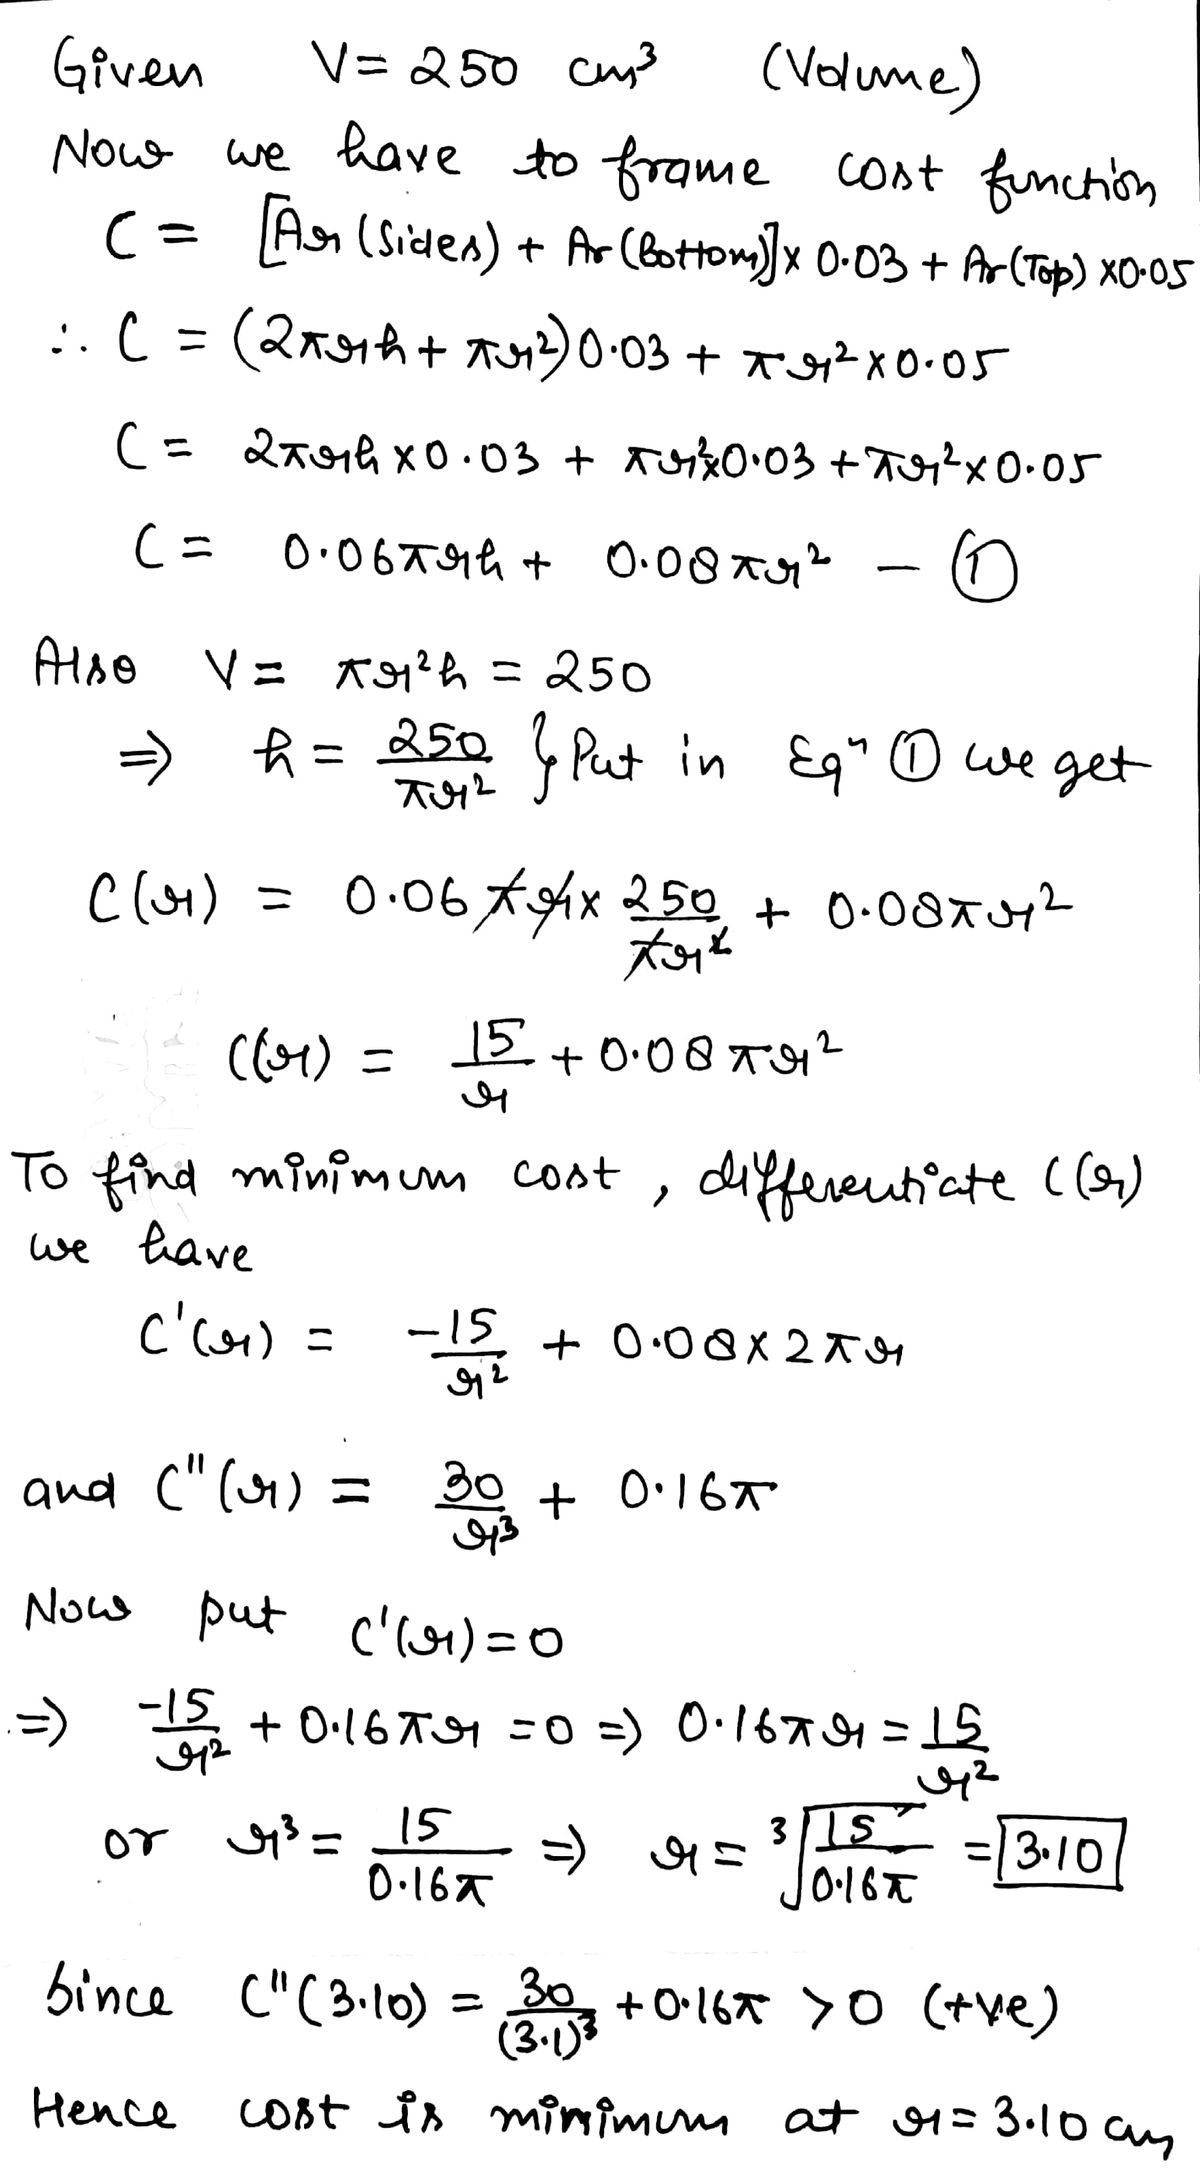 Given V = 250 cm³ (Volume)
Now we have to frame cost function
C = [Ar (Sides) + Ar (Bottom)] x 0.03 + Ar (Top) x 0.05
∴ C = (2πrh + πr²) 0.03 + πr² x 0.05
C = 2πrh x 0.03 + πr² x 0.03 + πr² x 0.05
C = 0.06πrh + 0.08πr² — ①
Also V = πr²h = 250
⇒ h = 250/πr² } Put in Eqⁿ ① we get
C(r) = 0.06 πr x 250/πr² + 0.08πr²
C(r) = 15/r + 0.08πr²
To find minimum cost, differentiate C(r)
we have
C'(r) = -15/r² + 0.08 x 2πr
and C"(r) = 30/r³ + 0.16π
Now put C'(r) = 0
⇒ -15/r² + 0.16πr = 0 ⇒ 0.16πr = 15/r²
or r³ = 15/0.16π ⇒ r = ³√(15/0.16π) = 3.10
Since C"(3.10) = 30/(3.1)³ + 0.16π > 0 (+ve)
Hence cost is minimum at r = 3.10 cm